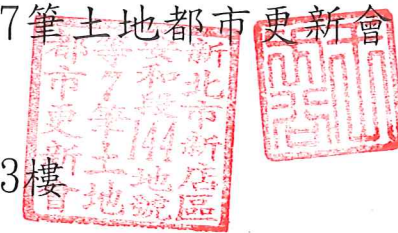 7筆土地都市更新會
新北市新店區
安和段144地號
等7筆土地
都市更新會
3樓